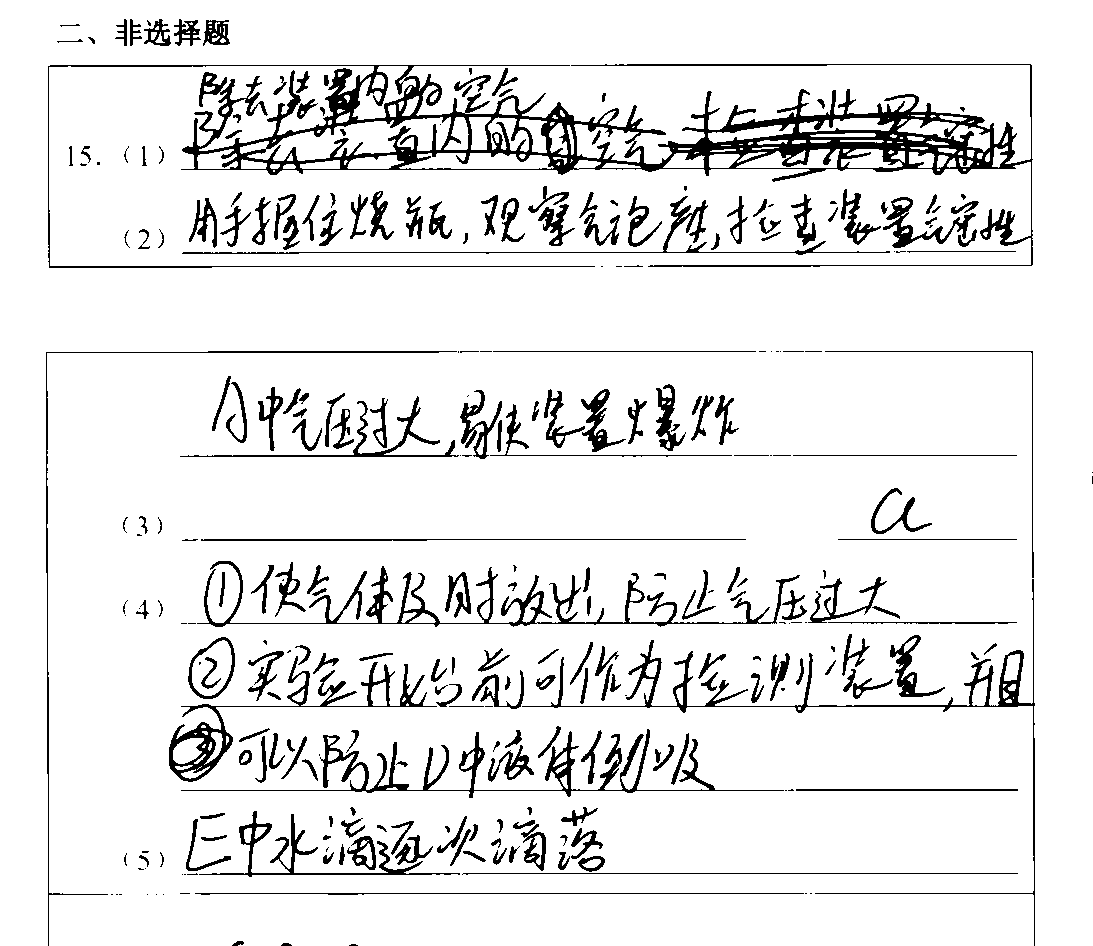 二、非选择题
除去装置内的空气
15.（1）除去装置内的空气 检查装置气密性
（2）用手握住烧瓶，观察气泡产生，检查装置气密性
A中气压过大，易使装置爆炸
（3） a
（4）①使气体及时放出，防止气压过大
②实验开始前可作为检测装置，并且
可以防止D中液体倒吸
（5）E中水滴逐次滴落